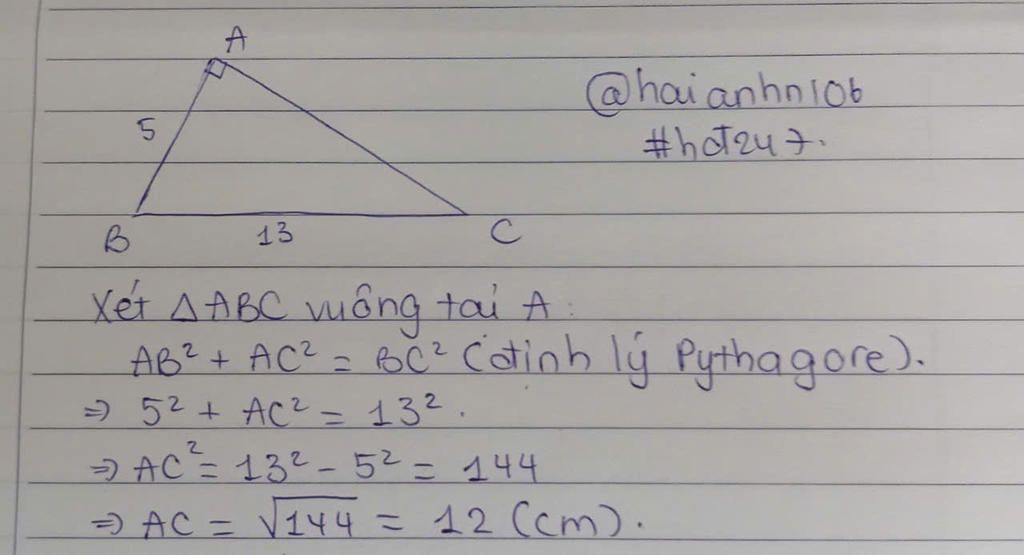 A
@haianhn106
5
#hđt247.
B
13
C
Xét △ABC vuông tại A:
AB² + AC² = BC² (định lý Pythagore).
⇒ 5² + AC² = 13².
⇒ AC² = 13² - 5² = 144
⇒ AC = √144 = 12 (cm).